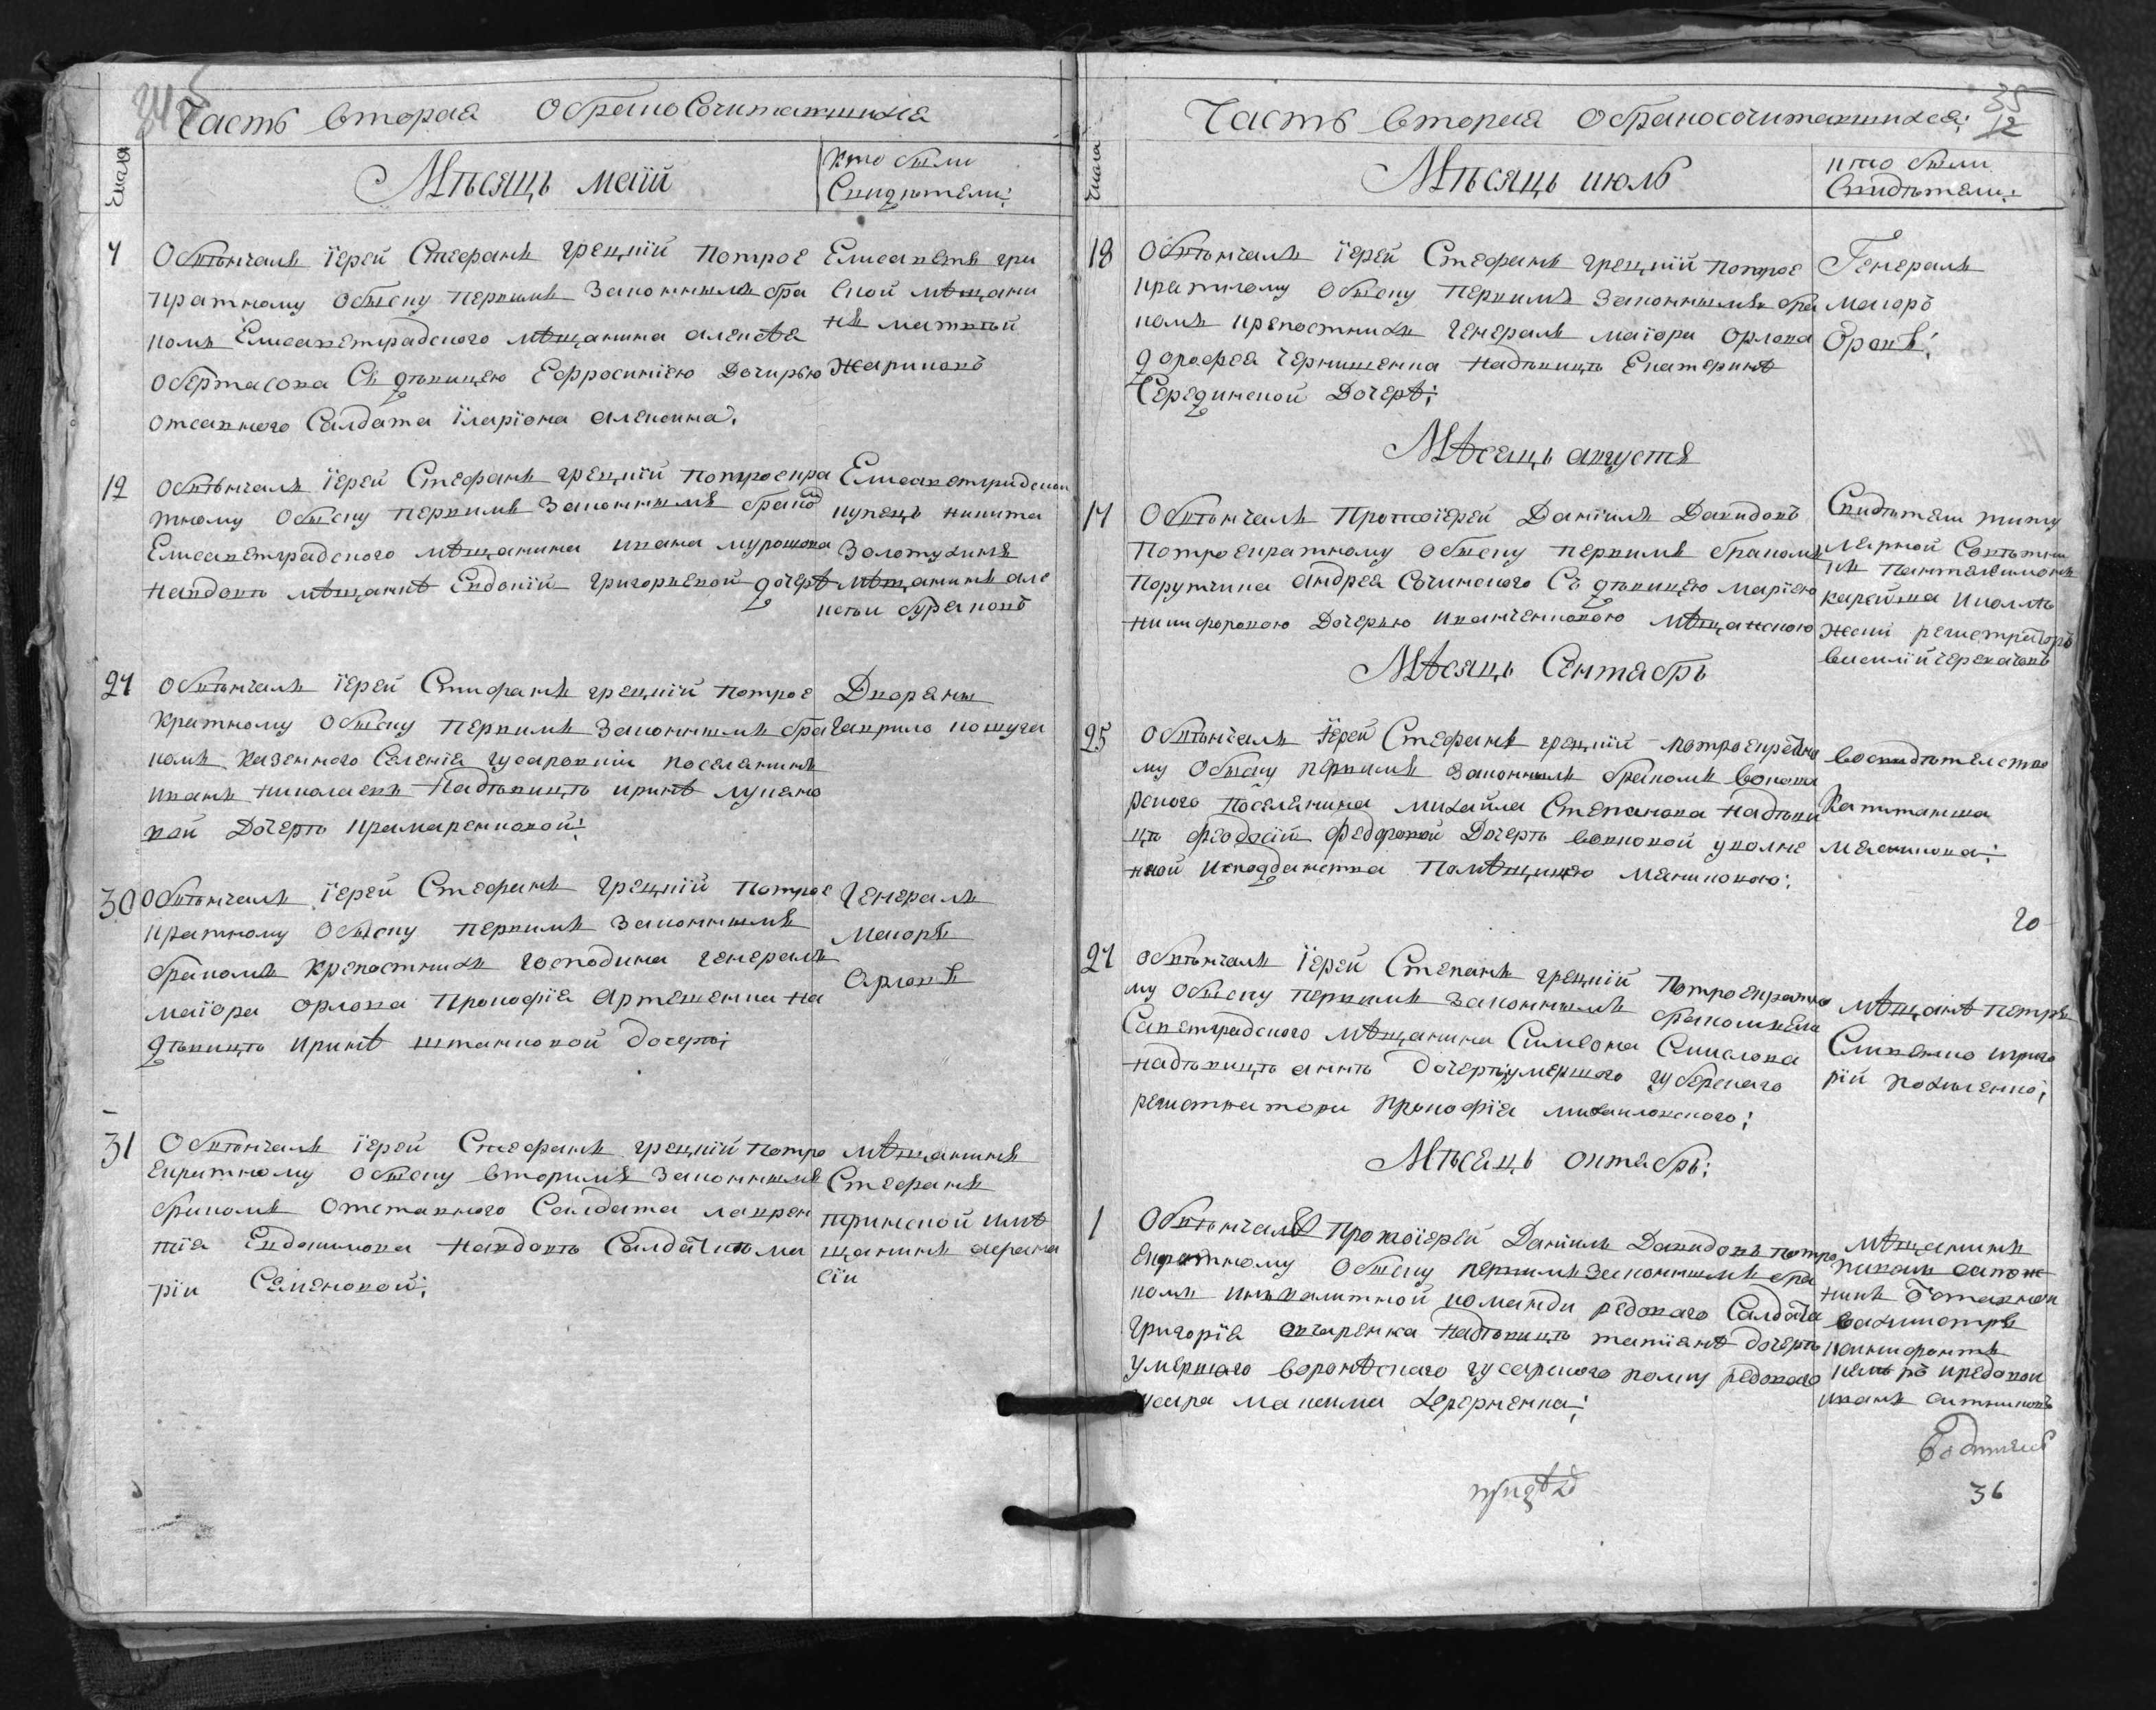 Часть вторая о бракосочитавшихся
Числа
Мѣсяцъ маій
Кто были
Свидѣтели:
4
Обвѣнчалъ іерей Стефанъ грецкій потрое
кратному обыску первымъ законнымъ бра
комъ Елисаветградского мѣщанина алексѣя
Съ дѣвицею Ефросиніею Дочирью
отсавного Салдата іларіона алексина:
Елисаветъ гри
ской мѣщани
нъ матвей
жариковъ
12
Обвѣнчалъ іерей Стефанъ грецкій потроекра
тному обыску первымъ законнымъ бракомъ
Елисаветградского мѣщанина ивана мурошова
навдовѣ мѣщанкѣ Евдокіи григорьевой дочерѣ
Елисаветградской
купецъ никита
золотухинъ
мѣщанинъ але
ксѣи бураковъ
24
обвѣнчалъ іерей Стифанъ грецкій потрое
кратному обыску первымъ законнымъ бра
комъ казенного Селенія гусаровки поселянинъ
иванъ николаевъ Надѣвицѣ иринѣ лукено
вой Дочерѣ крамаренковой:
Дворянинъ
гаврило кошуча
30
обвѣнчалъ іерей Стефанъ грецкій потрое
кратному обыску первымъ законнымъ
бракомъ крепостныхъ господина генералъ
маіора орлова прокофія Артешенка на
дѣвицѣ иринѣ штанковой дочерѣ;
Генералъ
Маіоръ
Орловъ
31
Обвѣнчалъ іерей Стефанъ грецкій потро
екратному обыску вторимъ законнымъ
бракомъ отставного Салдата лаврен
тія Евдокимова навдовѣ Салдаткѣ ма
ріи Семеновой:
мѣщанинъ
Стефанъ
имѣ
щанинъ
Часть вторая о бракосочитавшихся:
35
12
Числа
Мѣсяцъ июль
кто были
Свидѣтели:
18
Обвѣнчалъ іерей Стефанъ грецкій потрое
кратному обыску первымъ законнымъ бра
комъ крепостныхъ генералъ маіора орлова
дорофея чернишенка надѣвицѣ Екатеринѣ
Серединской Дочерѣ:
Генералъ
маіоръ
Орловъ:
Мѣсяцъ августъ
14
Обвѣнчалъ протоіерей Даніилъ Давидовъ
потроекратному обыску первымъ бракомъ
Порутчика андрея Сочинского Съ дѣвицею маріею
никифоровою Дочерью иванченковою мѣщанскою
Свидѣтели титу
лярной Совѣтни
къ пантелимонъ
карейша иколлѣ
жски регистраторъ
василій черкачовъ
Мѣсяцъ Сентябрь
25
Обвѣнчалъ іерей Стефанъ грецкій потроекратно
му обыску первымъ законнымъ бракомъ
ренаго поселянина михайла Степанова надѣви
цѣ феодосіи федоровой Дочерѣ вовковой уволне
нной исподданства помѣщицею маликовою:
во свидѣтелство
Капитанша
20
27
обвѣнчалъ іерей Стефанъ грецкій потроекратно
му обыску первымъ законнымъ бракомъ Ели
саветградского мѣщанина Симеона Смислова
надѣвицѣ аннѣ дочери умершаго губернского
регистратора прокофія михаиловского:
мѣщанѣ петръ
Сливенко игриго
рій похиленко:
Мѣсяцъ октябрь:
1
Обвѣнчалъ протоіерей Даніилъ Давидовъ потро
екратному обыску первымъ законнымъ бра
комъ инвалитной команди редоваго Салдата
григорія овчаренка надѣвицѣ татіанѣ дочерѣ
умершаго гусарского полку редоваго
гусара максима
мѣщанинъ
вахмистръ
иванъ ситниковъ
36